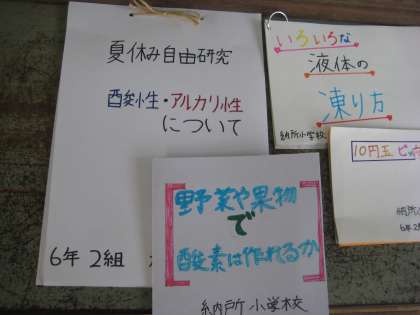 夏休み自由研究
酸性・アルカリ性
について
6年 2組
いろいろな
液体の
凍り方
納所小学校
10円玉 ピッ
納所
6年2
野菜や果物
で
酸素は作れるか
納所小学校